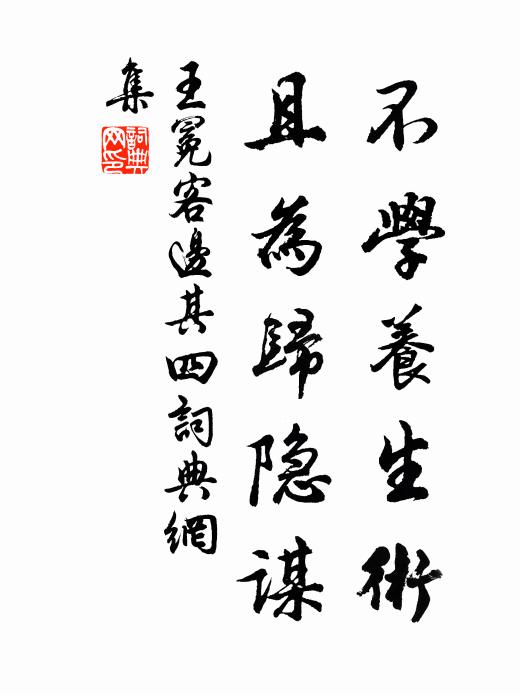 不學養生術
且為歸隐謀
王冕客邊其四詞典網
集
詞典
网印